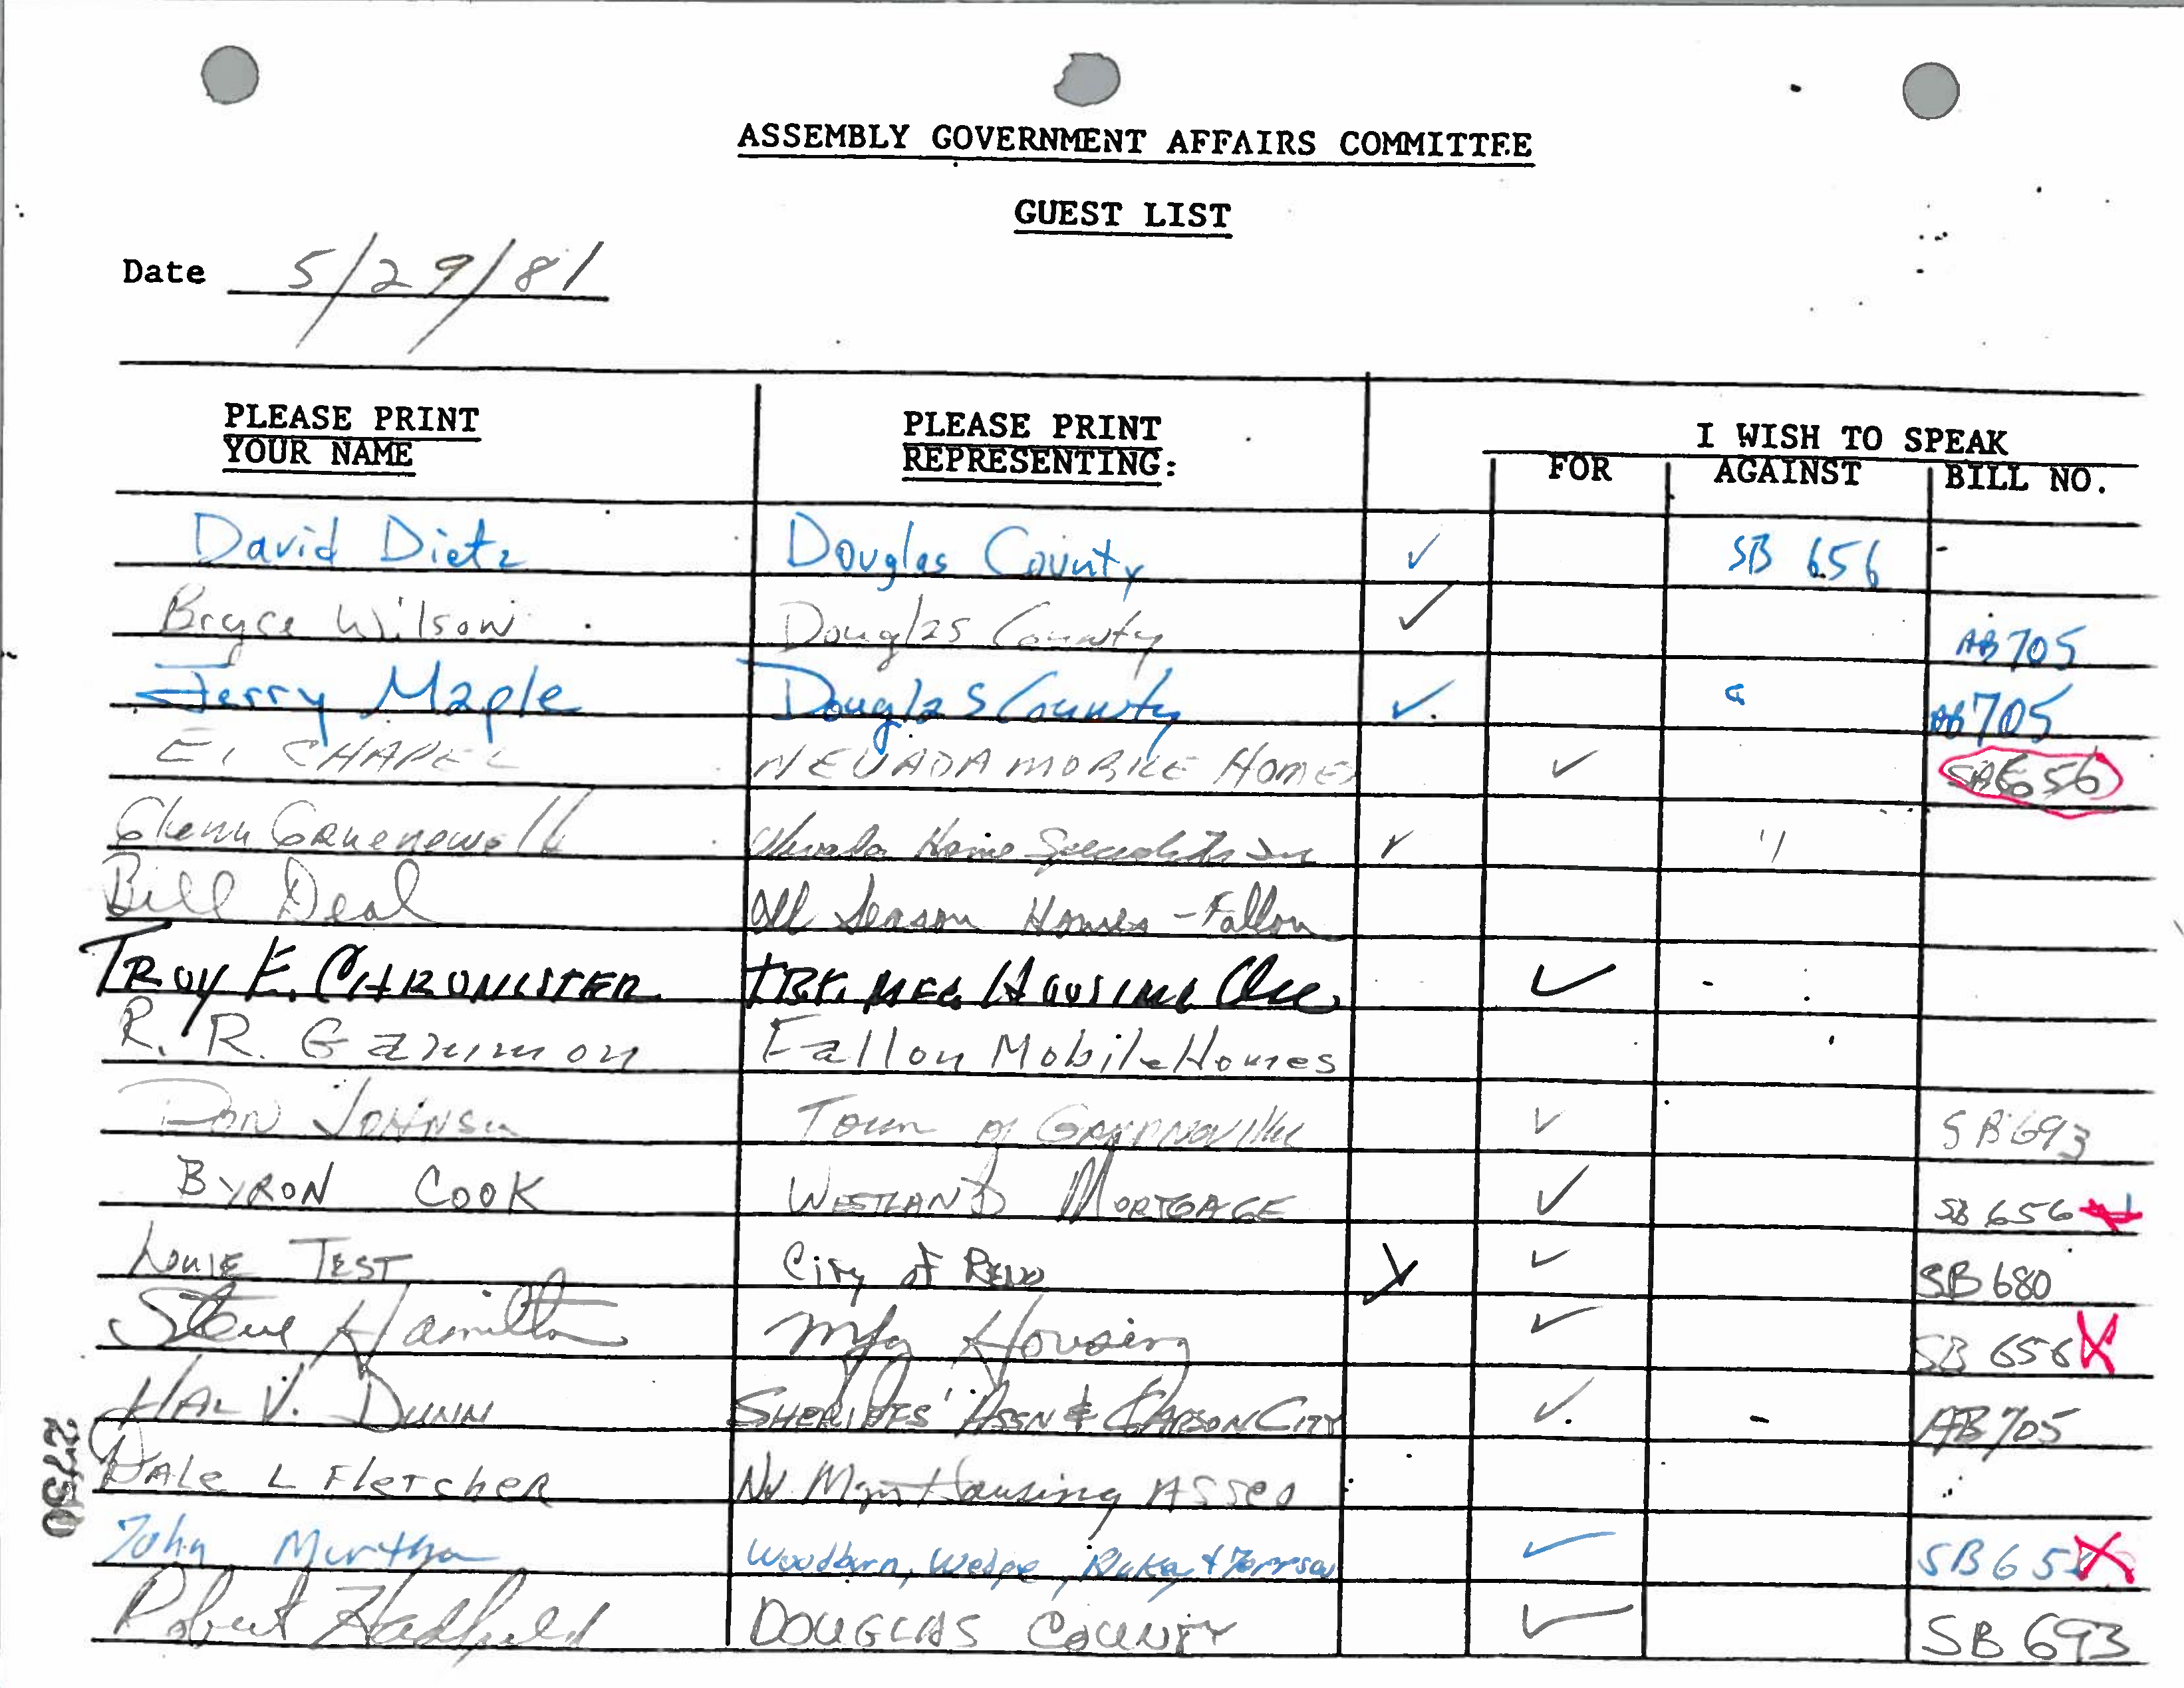 ASSEMBLY GOVERNMENT AFFAIRS COMMITTEE
GUEST LIST
Date 5/29/81
PLEASE PRINT YOUR NAME PLEASE PRINT REPRESENTING: I WISH TO SPEAK
FOR AGAINST BILL NO.
David Dietz Douglas County ✓ SB 656
Bryce Wilson Douglas County ✓ AB 705
Jerry Maple Douglas County ✓ AB 705
CHAPEL NEVADA MOBILE HOMES ✓ SB 656
Glenn Gruenewald Nevada Home Specialists Inc ✓ "
Bill Deal All Season Homes - Fallon
TROY E. CHRONISTER HOUSING ✓
R. R. Gammon Fallon Mobile Homes
DON JOHNSON Town of GARDNERVILLE ✓ SB 693
BYRON COOK WESTLAND MORTGAGE ✓ SB 656
LOUIE TEST City of RENO ✓ SB 680
Steve Hamilton Mfg Housing ✓ SB 656
HAL V. DUNN SHERIFFS' ASSN & CARSON CITY ✓ AB 705
DALE L FLETCHER NV Housing Assoc
John Murtha Woodburn, Wedge, Blakey & ✓ SB 65
Robert Hadfield DOUGLAS COUNTY ✓ SB 693
2750